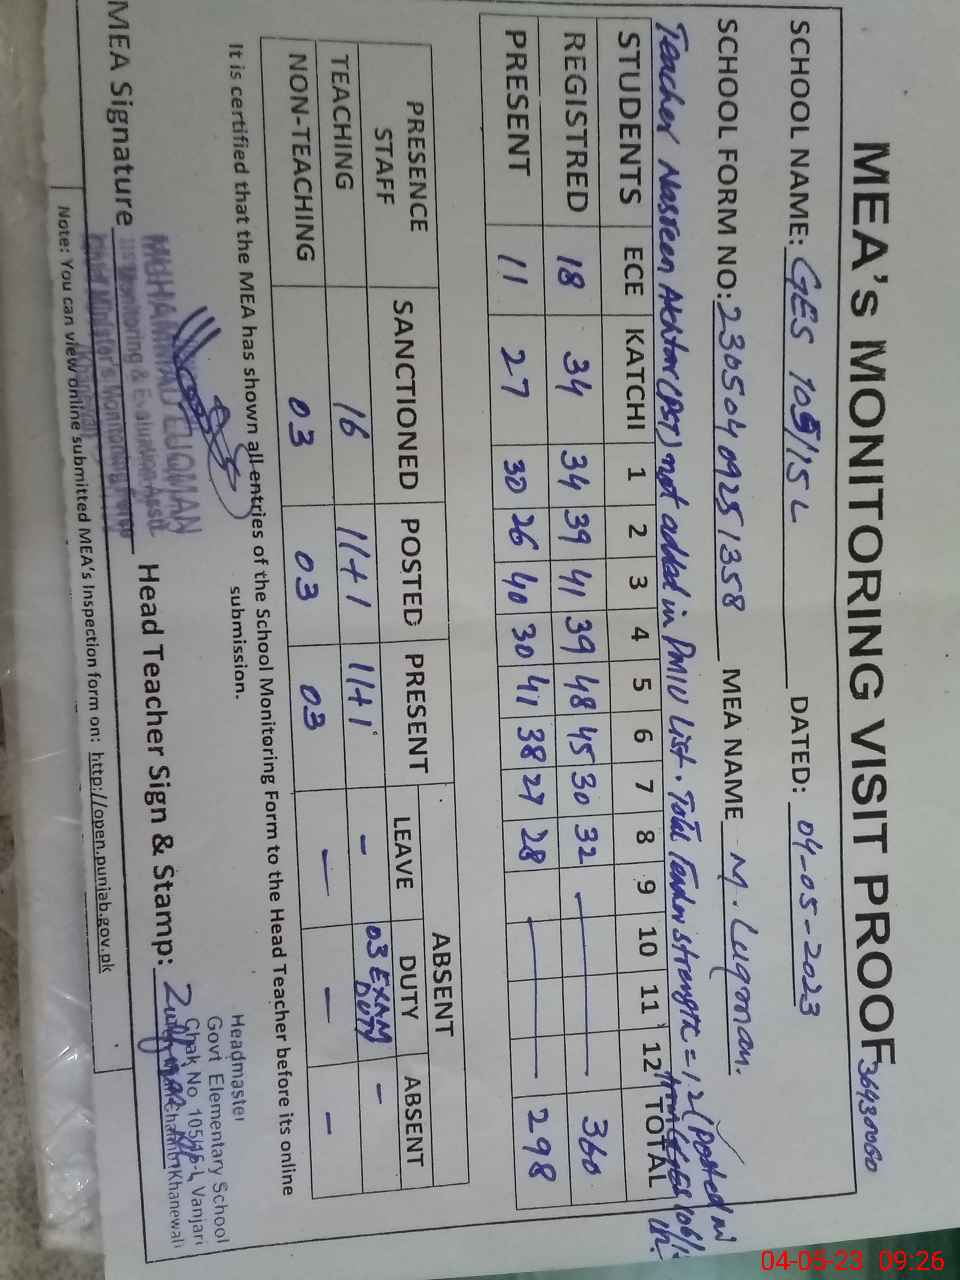 MEA's MONITORING VISIT PROOF 36930060
SCHOOL NAME: GES 105/15 L DATED: 04-05-2023
SCHOOL FORM NO: 23050409251358 MEA NAME M. Luqman.
Teacher Nasreen Akhtar (PST) not added in PMIU List. Total Teacher strength = 12 (Posted in
STUDENTS ECE KATCHI 1 2 3 4 5 6 7 8 9 10 11 12 TOTAL
REGISTRED 18 34 34 39 41 39 48 45 30 32 — 360
PRESENT 11 27 30 26 40 30 41 38 27 28 — 298
PRESENCE STAFF SANCTIONED POSTED PRESENT ABSENT
LEAVE DUTY ABSENT
TEACHING 16 11+1 11+1 - 03 EXAM DUTY -
NON-TEACHING 03 03 03 - - -
It is certified that the MEA has shown all entries of the School Monitoring Form to the Head Teacher before its online
submission.
MEA Signature Head Teacher Sign & Stamp:
MUHAMMAD LUQMAN
Monitoring & Evaluation Asstt
Chief Minister's Monitoring Force
Khanewal
Headmaster
Govt Elementary School
Chak No. 105/15-L, Vanjari
Khanewal
Note: You can view online submitted MEA's Inspection form on: http://open.punjab.gov.pk
04-05-23 09:26